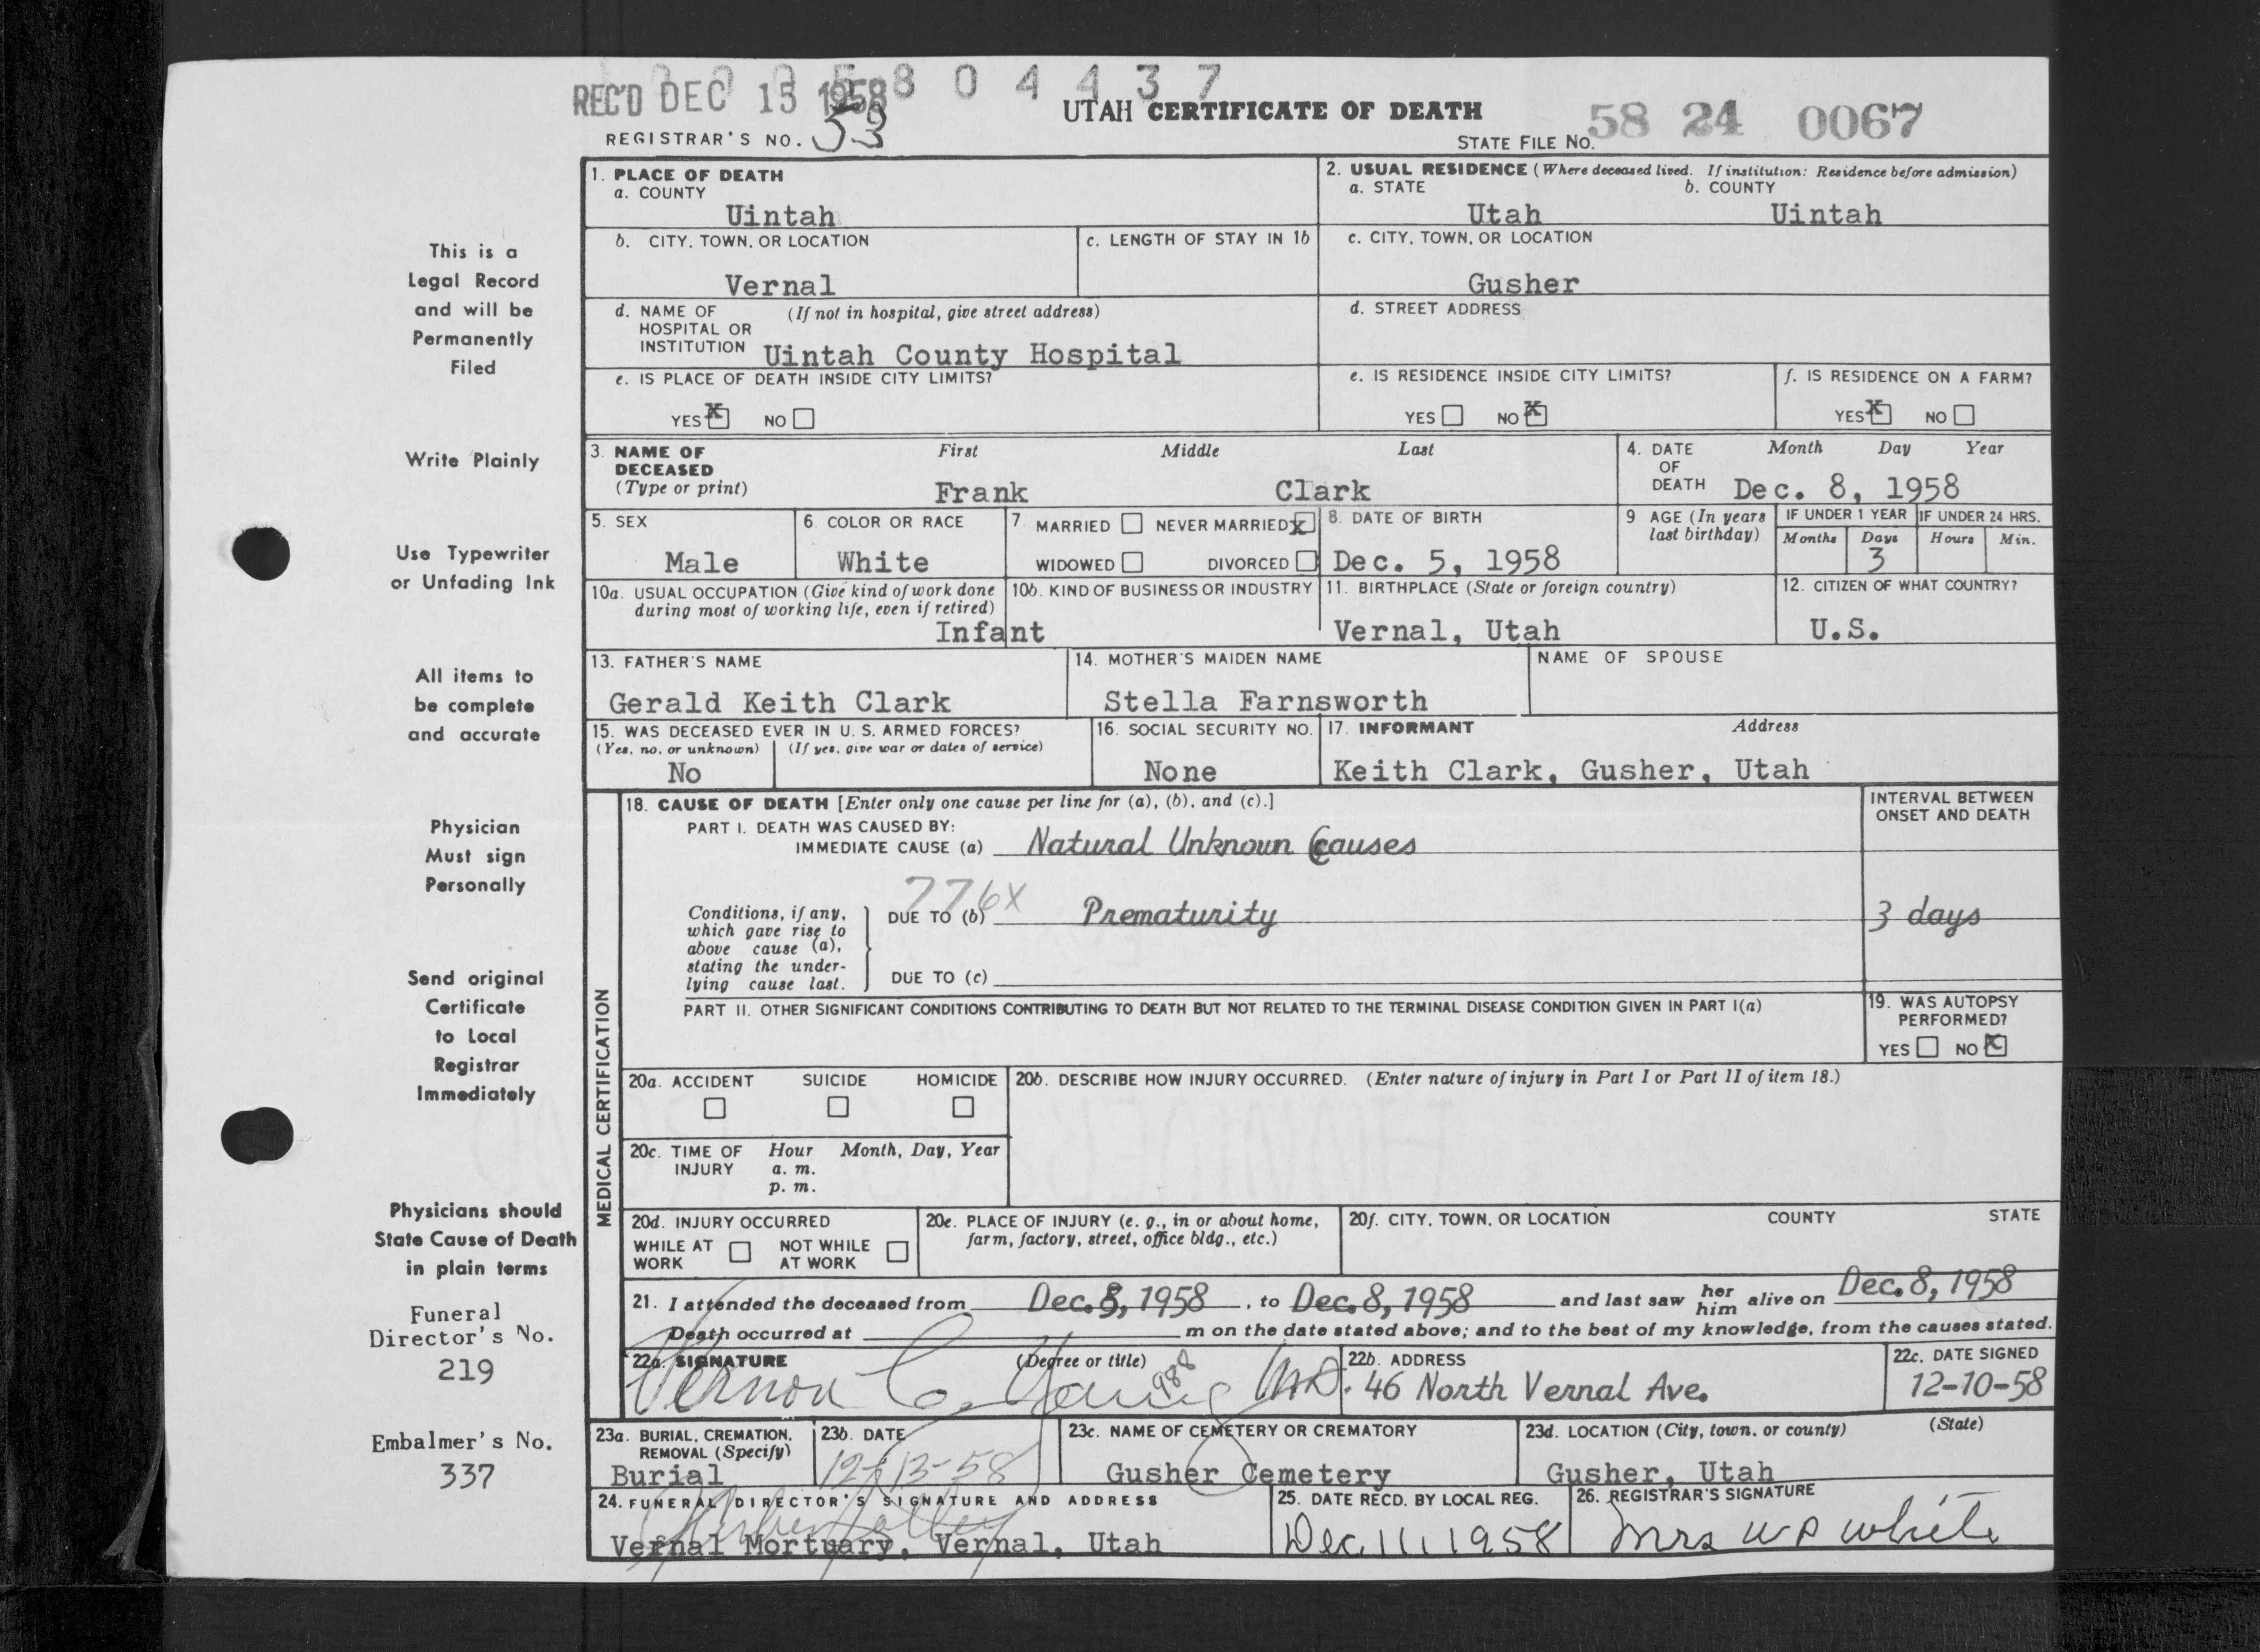 REC'D DEC 15 1958
5 8 0 4 4 3 7
UTAH CERTIFICATE OF DEATH
REGISTRAR'S NO. 53
STATE FILE NO. 58 24 0067
This is a
Legal Record
and will be
Permanently
Filed
Write Plainly
Use Typewriter
or Unfading Ink
All items to
be complete
and accurate
Physician
Must sign
Personally
Send original
Certificate
to Local
Registrar
Immediately
Physicians should
State Cause of Death
in plain terms
Funeral
Director's No.
219
Embalmer's No.
337
1. PLACE OF DEATH
a. COUNTY
Uintah
2. USUAL RESIDENCE (Where deceased lived. If institution: Residence before admission)
a. STATE b. COUNTY
Utah Uintah
b. CITY, TOWN, OR LOCATION
Vernal
c. LENGTH OF STAY IN 1b
c. CITY, TOWN, OR LOCATION
Gusher
d. NAME OF (If not in hospital, give street address)
HOSPITAL OR
INSTITUTION Uintah County Hospital
d. STREET ADDRESS
e. IS PLACE OF DEATH INSIDE CITY LIMITS?
YES X NO
e. IS RESIDENCE INSIDE CITY LIMITS?
YES NO X
f. IS RESIDENCE ON A FARM?
YES X NO
3. NAME OF First Middle Last
DECEASED
(Type or print) Frank Clark
4. DATE Month Day Year
OF
DEATH Dec. 8, 1958
5. SEX
Male
6. COLOR OR RACE
White
7. MARRIED NEVER MARRIED X
WIDOWED DIVORCED
8. DATE OF BIRTH
Dec. 5, 1958
9 AGE (In years
last birthday)
IF UNDER 1 YEAR IF UNDER 24 HRS.
Months Days Hours Min.
3
10a. USUAL OCCUPATION (Give kind of work done
during most of working life, even if retired)
Infant
10b. KIND OF BUSINESS OR INDUSTRY
11. BIRTHPLACE (State or foreign country)
Vernal, Utah
12. CITIZEN OF WHAT COUNTRY?
U.S.
13. FATHER'S NAME
Gerald Keith Clark
14. MOTHER'S MAIDEN NAME
Stella Farnsworth
NAME OF SPOUSE
15. WAS DECEASED EVER IN U. S. ARMED FORCES?
(Yes, no, or unknown) (If yes, give war or dates of service)
No
16. SOCIAL SECURITY NO.
None
17. INFORMANT Address
Keith Clark, Gusher, Utah
MEDICAL CERTIFICATION
18. CAUSE OF DEATH [Enter only one cause per line for (a), (b), and (c).]
PART I. DEATH WAS CAUSED BY:
IMMEDIATE CAUSE (a) Natural Unknown Causes
INTERVAL BETWEEN
ONSET AND DEATH
776X
Conditions, if any,
which gave rise to
above cause (a),
stating the under-
lying cause last.
DUE TO (b) Prematurity
3 days
DUE TO (c)
PART II. OTHER SIGNIFICANT CONDITIONS CONTRIBUTING TO DEATH BUT NOT RELATED TO THE TERMINAL DISEASE CONDITION GIVEN IN PART I(a)
19. WAS AUTOPSY
PERFORMED?
YES NO X
20a. ACCIDENT SUICIDE HOMICIDE
20b. DESCRIBE HOW INJURY OCCURRED. (Enter nature of injury in Part I or Part II of item 18.)
20c. TIME OF Hour Month, Day, Year
INJURY a. m.
p. m.
20d. INJURY OCCURRED
WHILE AT NOT WHILE
WORK AT WORK
20e. PLACE OF INJURY (e. g., in or about home,
farm, factory, street, office bldg., etc.)
20f. CITY, TOWN, OR LOCATION COUNTY STATE
21. I attended the deceased from Dec. 5, 1958, to Dec. 8, 1958 and last saw her him alive on Dec. 8, 1958
Death occurred at m on the date stated above; and to the best of my knowledge, from the causes stated.
22a. SIGNATURE (Degree or title)
Vernon C. Young M.D.
988
22b. ADDRESS
46 North Vernal Ave.
22c. DATE SIGNED
12-10-58
23a. BURIAL, CREMATION,
REMOVAL (Specify)
Burial
23b. DATE
12-13-58
23c. NAME OF CEMETERY OR CREMATORY
Gusher Cemetery
23d. LOCATION (City, town, or county) (State)
Gusher, Utah
24. FUNERAL DIRECTOR'S SIGNATURE AND ADDRESS
Vernal Mortuary, Vernal, Utah
25. DATE RECD. BY LOCAL REG.
Dec. 11, 1958
26. REGISTRAR'S SIGNATURE
Mrs W P White